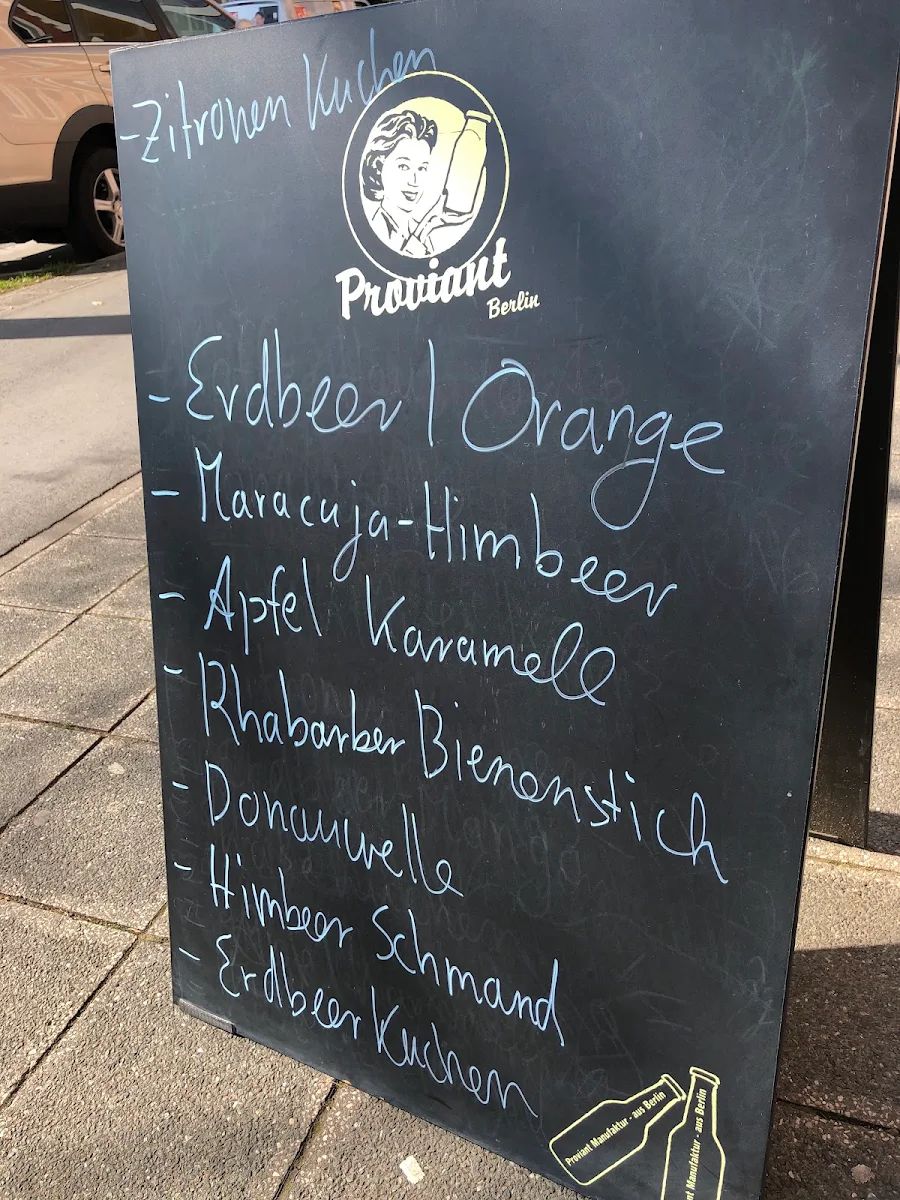 -Zitronen Kuchen
Proviant
Berlin
- Erdbeer | Orange
- Maracuja-Himbeer
- Apfel Karamell
- Rhabarber Bienenstich
- Donauwelle
- Himbeer Schmand
- Erdbeer Kuchen
Proviant Manufaktur - aus Berlin
nt Manufaktur - aus Berlin